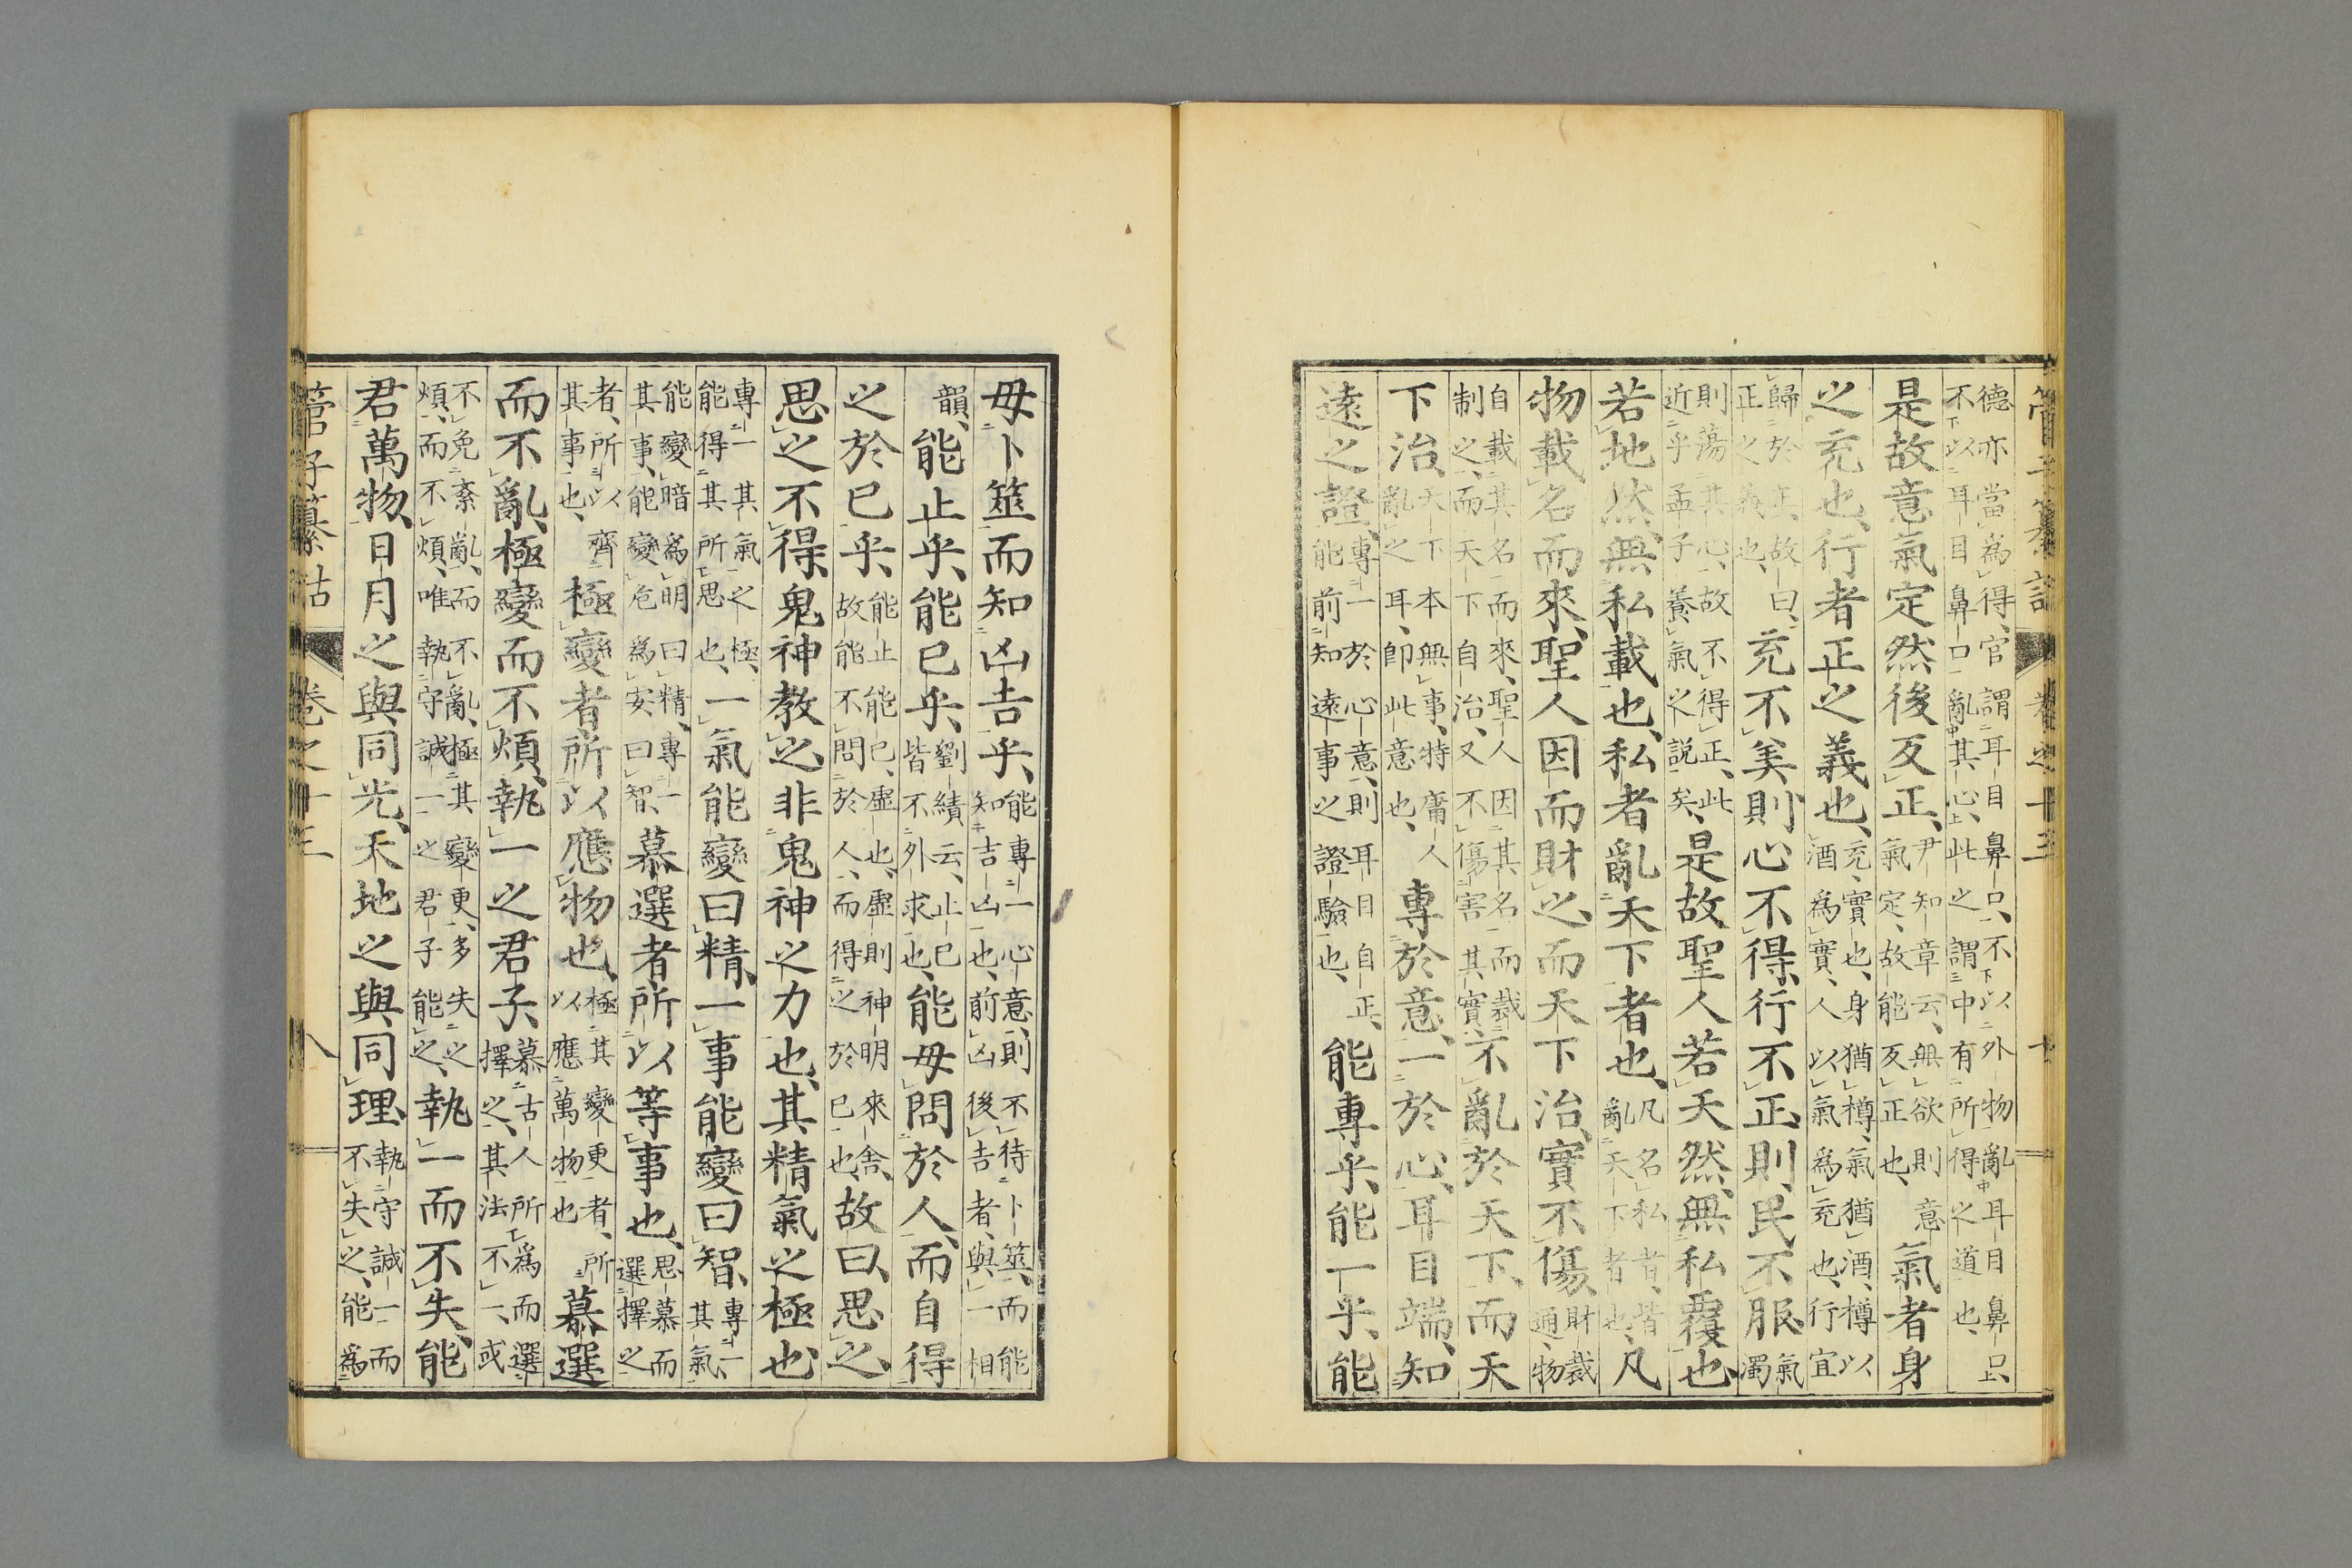 管子纂詁 卷之十三 七
德亦當爲得、官謂耳目鼻口、不以外物亂耳目鼻口、
不以耳目鼻口亂其心、此之謂中有所得之道也、
是故意氣定然後反正、尹知章云、無欲則意氣定、故能反正也、氣者身
之充也、行者正之義也、充、實也、身猶樽、氣猶酒、樽以酒爲實、人以氣爲充也、行宜
歸於正、故曰、正之義也、充不美則心不得、行不正則民不服、氣濁
則蕩其心、故不得正、此近乎孟子養氣之說矣、是故聖人若天然、無私覆也、
若地然、無私載也、私者亂天下者也、凡名私者、皆亂天下者也、凡
物載名而來、聖人因而財之、而天下治、實不傷、財裁通、物
自載其名而來、聖人因其名而裁制之、而天下自治、又不傷害其實、不亂於天下、而天
下治、天下本無事、特庸人亂之耳、卽此意也、專於意、一於心、耳目端、知
遠之證、專一於心意、則耳目自正、能前知遠事之證驗也、能專乎、能一乎、能
毋卜筮而知凶吉乎、能專一心意、則不待卜筮、而能知吉凶也、前凶後吉者、與一相
韻、能止乎、能已乎、劉績云、止已皆不外求也、能毋問於人、而自得
之於已乎、能止能已、虛也、虛則神明來舍、故能不問於人、而得之於已也、故曰、思之、
思之不得、鬼神教之、非鬼神之力也、其精氣之極也、
專一其氣之極、能得其所思也、一氣能變曰精、一事能變曰智、專一其氣、
能變暗爲明曰精、專一其事、能變危爲安曰智、慕選者、所以等事也、思慕而選擇之
者、所以齊其事也、極變者、所以應物也、極其變更者、所以應萬物也 慕選
而不亂、極變而不煩、執一之君子、慕古人所爲而選擇之、其法不一、或
不免紊亂、而不亂、極其變更、多失之煩、而不煩、唯執守誠一之君子能之、執一而不失、能
君萬物、日月之與同光、天地之與同理、執守誠一而不失之、能爲
管子纂詁 卷之十三 八